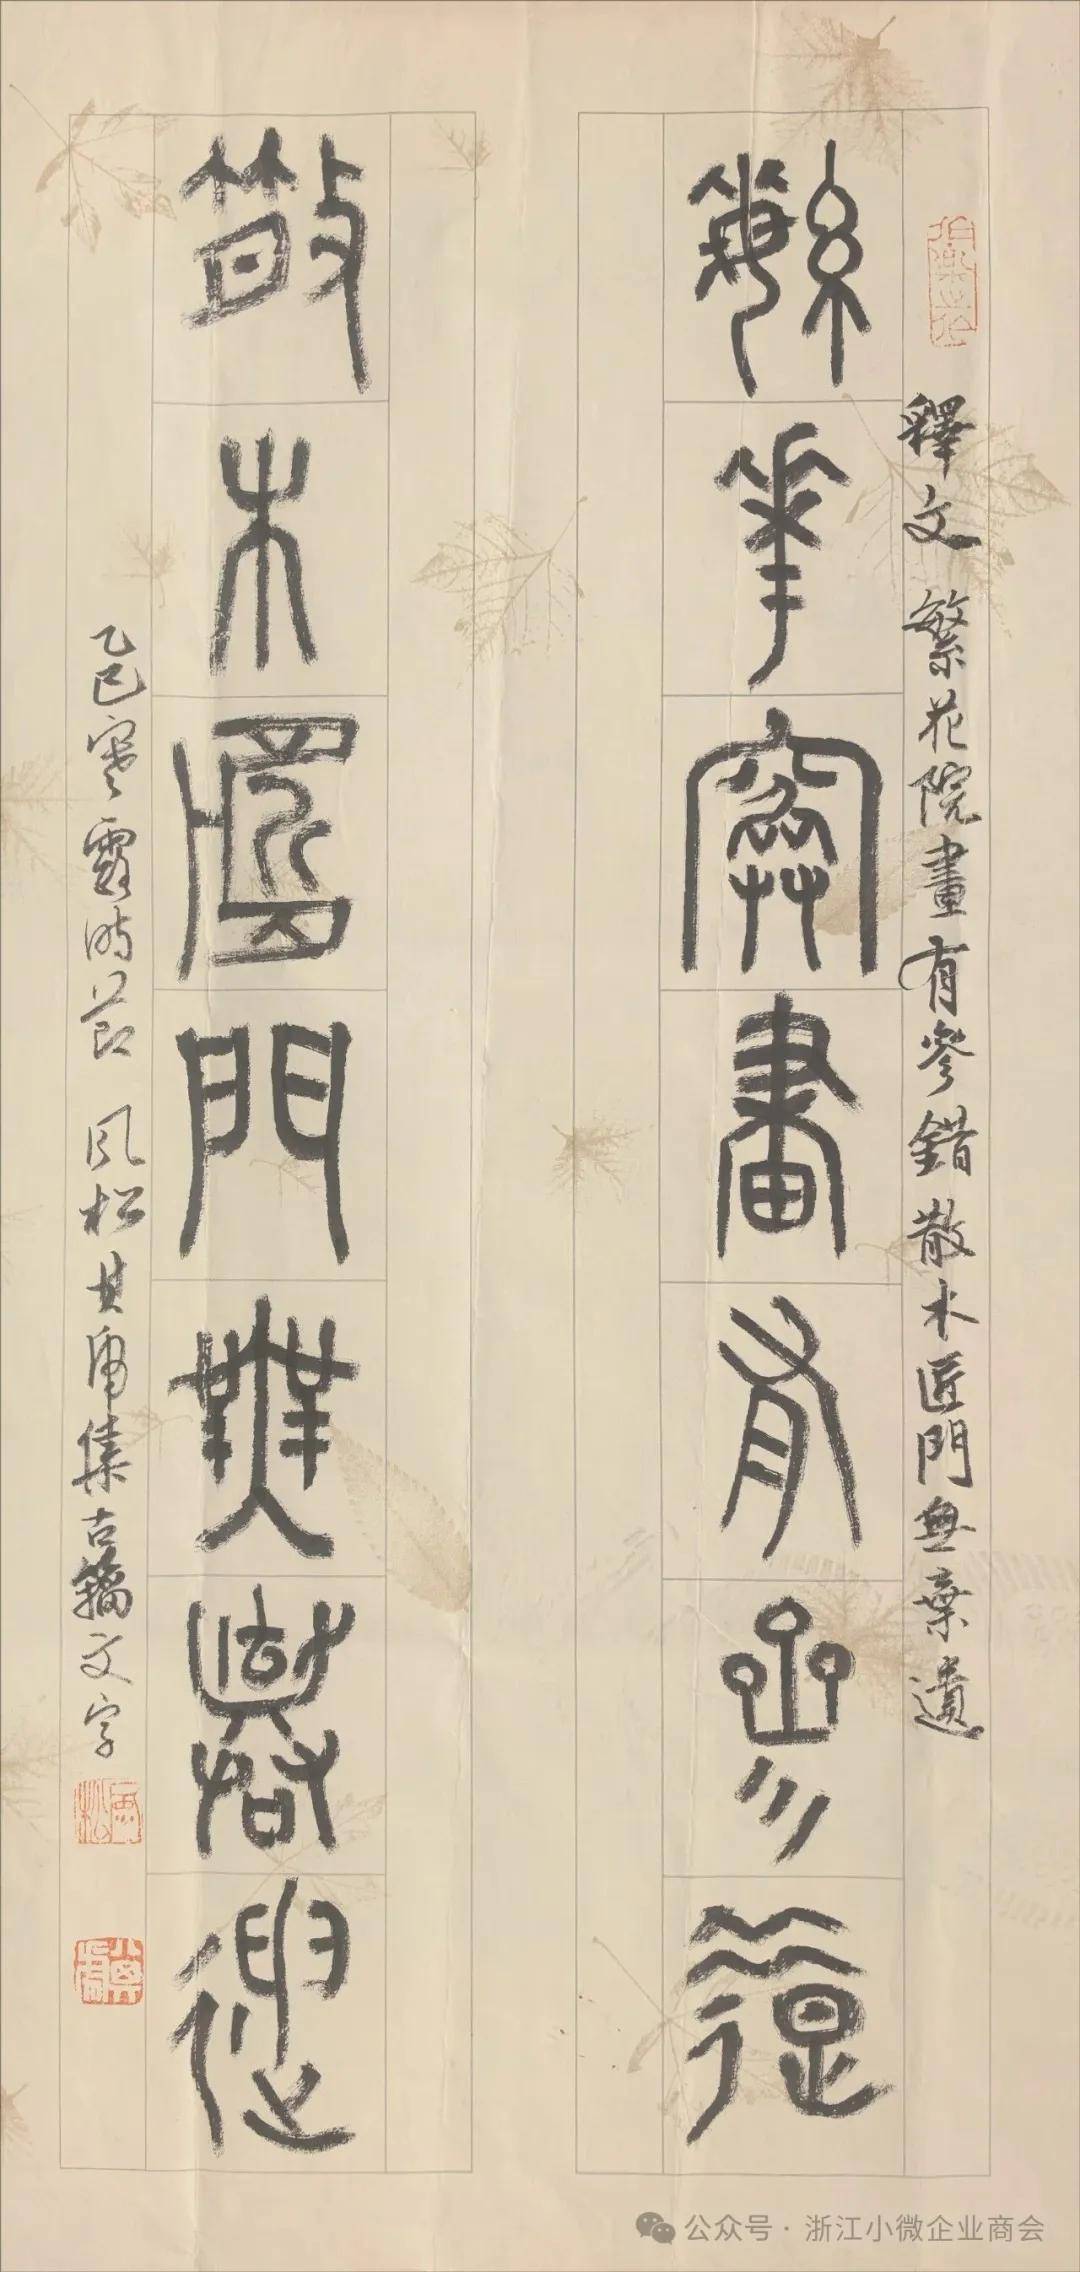 釋文 繁花院畫有參錯散木匠門無棄遺
繁華院畫有參錯
散木匠門無棄遺
乙巳寒露時節 風松其庸集古籀文字
公众号·浙江小微企业商会